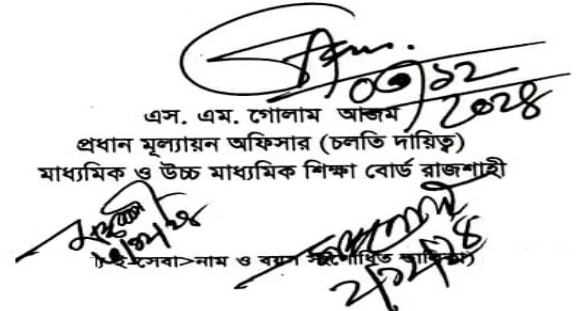 ০৩/১২
২০২৪
এস. এম. গোলাম আজম
প্রধান মূল্যায়ন অফিসার (চলতি দায়িত্ব)
মাধ্যমিক ও উচ্চ মাধ্যমিক শিক্ষা বোর্ড রাজশাহী
ই-সেবা>নাম ও বয়স সংশোধিত তালিকা)
২/১২/২৪